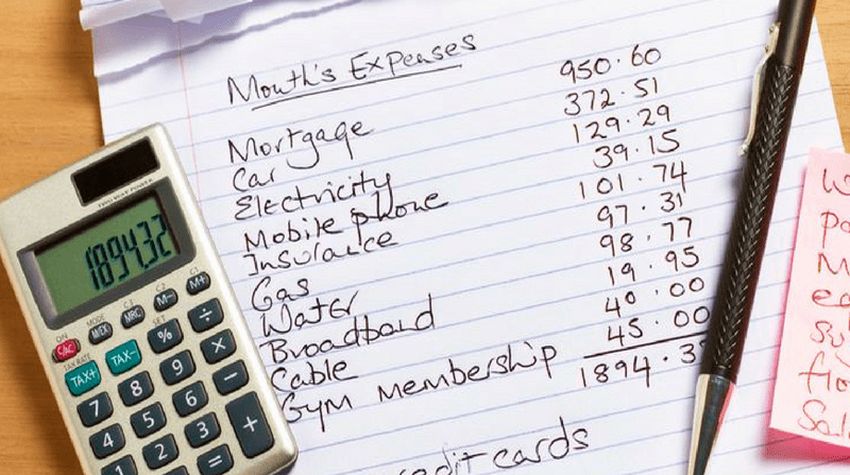 Month's Expenses
Mortgage 950.60
Car 372.51
Electricity 129.29
Mobile phone 39.15
Insurance 101.74
Gas 97.31
Water 98.77
Broadband 19.95
Cable 40.00
Gym membership 45.00
1894.3
credit cards
TWO WAY POWER
1894.32
ON MODE C3 C2 C1
C/AC M/EX MRC M- M+
TAX RATE SET
TAX+ TAX- % ÷
7 8 9 ×
4 5 6 -
1 2 3 +
=